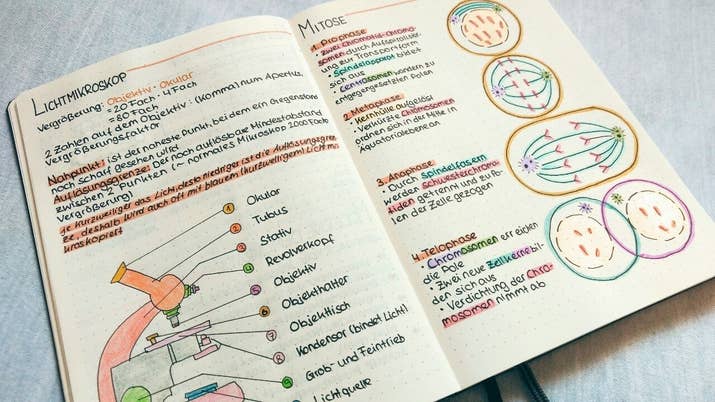 LICHTMIKROSKOP
Vergrößerung: Objektiv · Okular
= 20 Fach · 4 Fach
= 80 Fach
2 Zahlen auf dem Objektiv: (Komma) num Apertur,
Vergrößerungsfaktor
Nahpunkt: ist der naheste Punkt, bei dem ein Gegenstand
noch scharf gesehen wird
Auflösungsgrenze: Der noch auflösbare Mindestabstand
zwischen 2 Punkten (~ normales Mikroskop 2000 Fache
Vergrößerung)
Je kurzwelliger das Licht, desto niedriger ist die Auflösungsgren-
ze, deshalb wird auch oft mit blauem (kurzwelligem) Licht m.
kroskopiert
1 Okular
2 Tubus
3 Stativ
4 Revolverkopf
5 Objektiv
6 Objekthalter
7 Objekttisch
8 Kondensor (bindet Licht)
9 Grob- und Feintrieb
Lichtquelle
MITOSE
1. Prophase
• Zwei Chromatid-Chromo-
somen durch Aufspiralisier-
ung zur Transportform
• Spindelapparat bildet
sich aus
• Centrosomen wandern zu
entgegengesetzten Polen
2. Metaphase
• Kernhülle aufgelöst
• Verkürzte Chromosomen
ordnen sich in die Mitte in
Äquatorialebene an
3. Anaphase
• Durch Spindelfasern
werden Schwesterchroma-
tiden getrennt und zu Po-
len der Zelle gezogen
4. Telophase
• Chromosomen erreichen
die Pole
• Zwei neue Zellkerne bil-
den sich aus
• Verdichtung der Chro-
mosomen nimmt ab